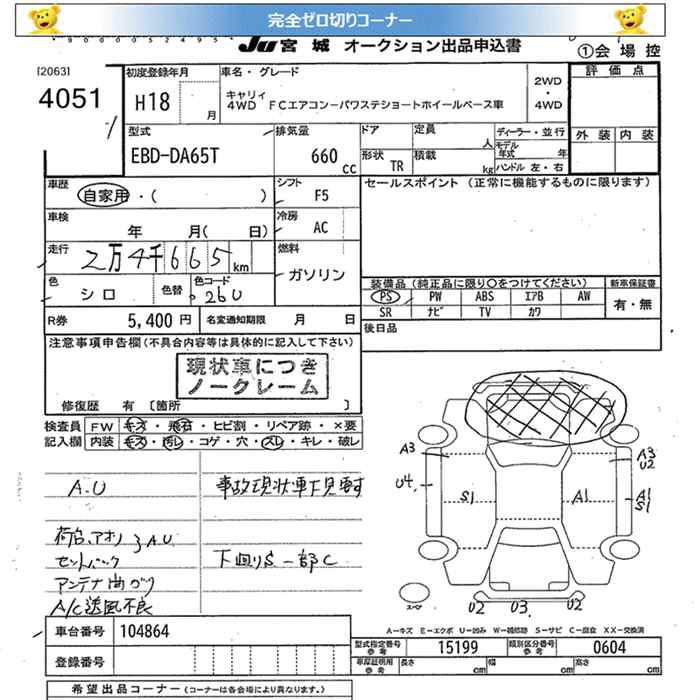 完全ゼロ切りコーナー
JU 宮城 オークション出品申込書
①会場控
[2063]
4051
初度登録年月
H18
月
車名・グレード
キャリィ
4WD FCエアコンーパワステショートホイールベース車
2WD
・
4WD
評価点
外装 内装
型式
EBD-DA65T
排気量
660
cc
ドア
形状 TR
定員
人
積載
kg
ディーラー・並行
モデル年式 年
ハンドル 左・右
車歴
自家用・( )
シフト
F5
セールスポイント (正常に機能するものに限ります)
車検
年 月( 日)
冷房
AC
走行
2万4千665 km
燃料
ガソリン
色
シロ
色替
色コード
26U
装備品(純正品に限り○をつけてください)
新車保証書
PS PW ABS エアB AW
SR ナビ TV カワ
有・無
R券 5,400円
名変通知期限 月 日
後日品
注意事項申告欄(不具合内容等は具体的に記入して下さい)
現状車につき
ノークレーム
修復歴 有 [箇所 ]
検査員
記入欄
FW キズ・飛石・ヒビ割・リペア跡・×要
内装 キズ・汚れ・コゲ・穴・スレ・キレ・破レ
A.U
事故現状車下見要す
荷台、アオリ A.U.
セットバック
下回りS 一部C
アンテナ曲がり
A/C送風不良
A3
U4
S1
A1
A3
U2
A1
S1
スペア
U2 U3 U2
A-キズ E-エクボ U-凹み W-補修跡 S-サビ C-腐食 XX-交換済
車台番号 104864
型式指定番号
参考
15199
類別区分番号
参考
0604
登録番号
車庫証明用
参考
長さ cm 幅 cm 高さ cm
希望出品コーナー (コーナーは各会場により異なります。)